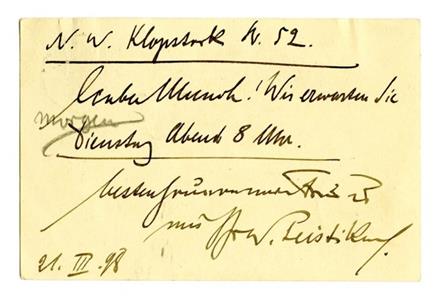 N. W. Klopstock Str. 52.
Lieber Munch! Wir erwarten Sie
morgen
Dienstag Abend 8 Uhr.
besten
W. Leistikow.
21. III. 98